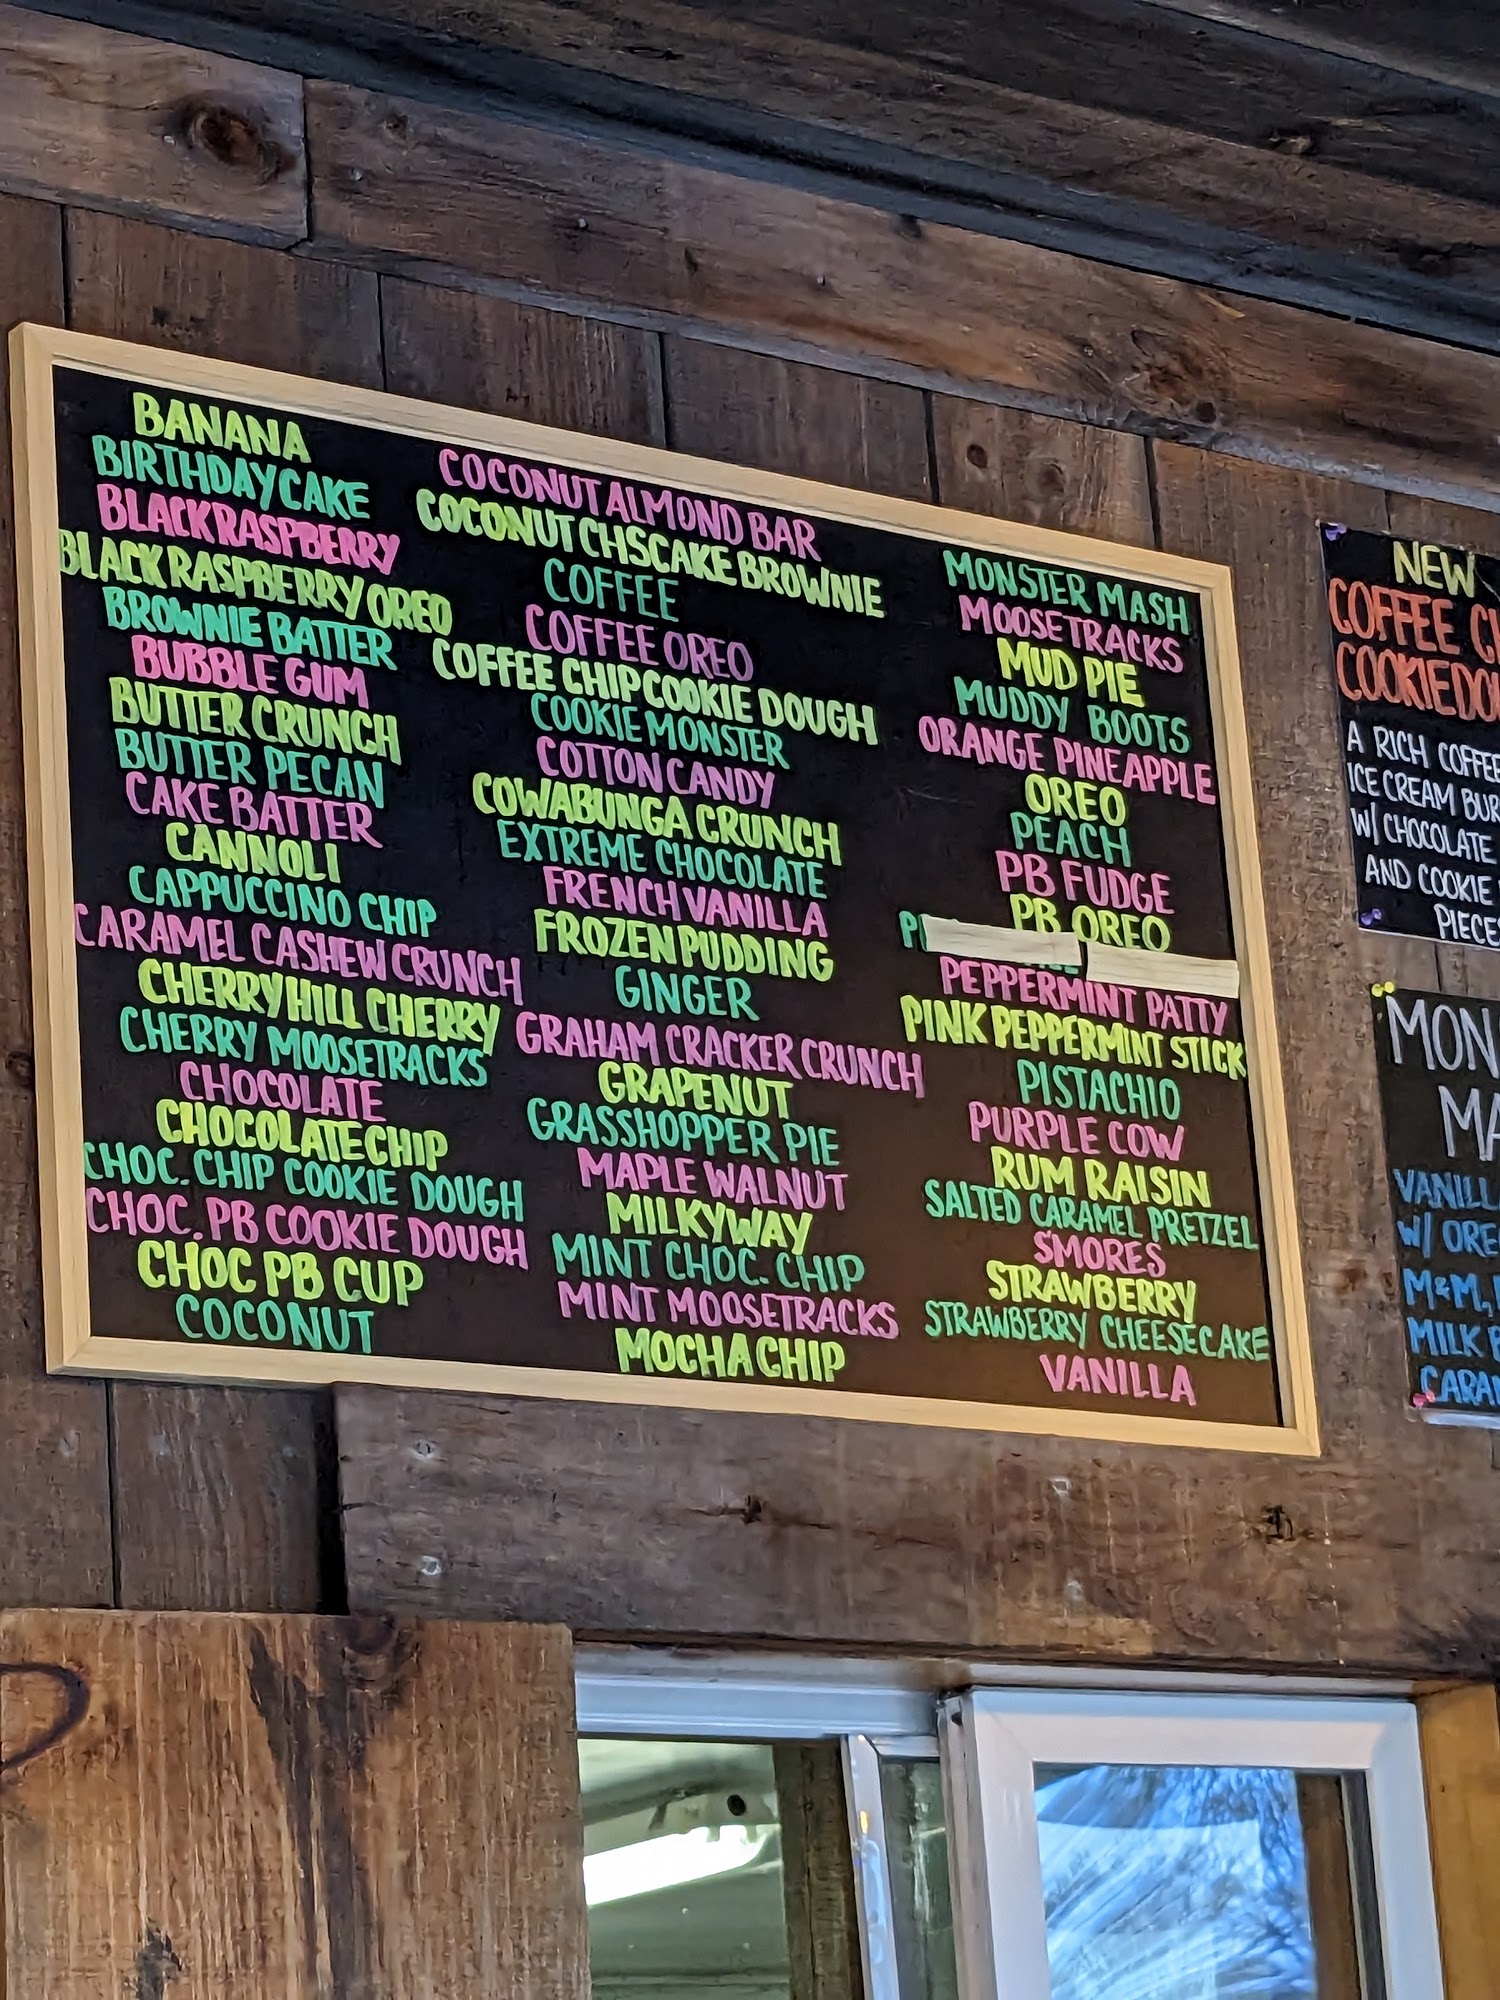 BANANA
BIRTHDAY CAKE
BLACK RASPBERRY
BLACK RASPBERRY OREO
BROWNIE BATTER
BUBBLE GUM
BUTTER CRUNCH
BUTTER PECAN
CAKE BATTER
CANNOLI
CAPPUCCINO CHIP
CARAMEL CASHEW CRUNCH
CHERRY HILL CHERRY
CHERRY MOOSETRACKS
CHOCOLATE
CHOCOLATE CHIP
CHOC. CHIP COOKIE DOUGH
CHOC. PB COOKIE DOUGH
CHOC PB CUP
COCONUT
COCONUT ALMOND BAR
COCONUT CHSCAKE BROWNIE
COFFEE
COFFEE OREO
COFFEE CHIP COOKIE DOUGH
COOKIE MONSTER
COTTON CANDY
COWABUNGA CRUNCH
EXTREME CHOCOLATE
FRENCH VANILLA
FROZEN PUDDING
GINGER
GRAHAM CRACKER CRUNCH
GRAPENUT
GRASSHOPPER PIE
MAPLE WALNUT
MILKYWAY
MINT CHOC. CHIP
MINT MOOSETRACKS
MOCHA CHIP
MONSTER MASH
MOOSETRACKS
MUD PIE
MUDDY BOOTS
ORANGE PINEAPPLE
OREO
PEACH
PB FUDGE
PB OREO
PEPPERMINT PATTY
PINK PEPPERMINT STICK
PISTACHIO
PURPLE COW
RUM RAISIN
SALTED CARAMEL PRETZEL
S'MORES
STRAWBERRY
STRAWBERRY CHEESECAKE
VANILLA
NEW
COFFEE
A RICH COFFEE
ICE CREAM
W/ CHOCOLATE
AND COOKIE
W/
M&M,
MILK